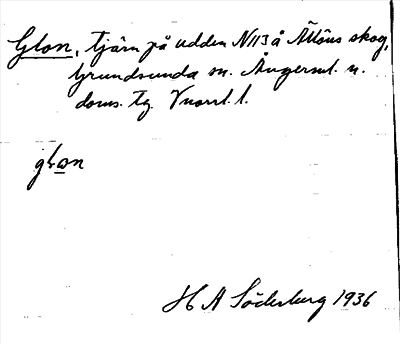 Glon, tjärn på udden N113 å Ällöns skog,
Grundsunda sn. Ångerml. n.
doms. tg. Vnorrl. l.
glon
H A Söderberg 1936